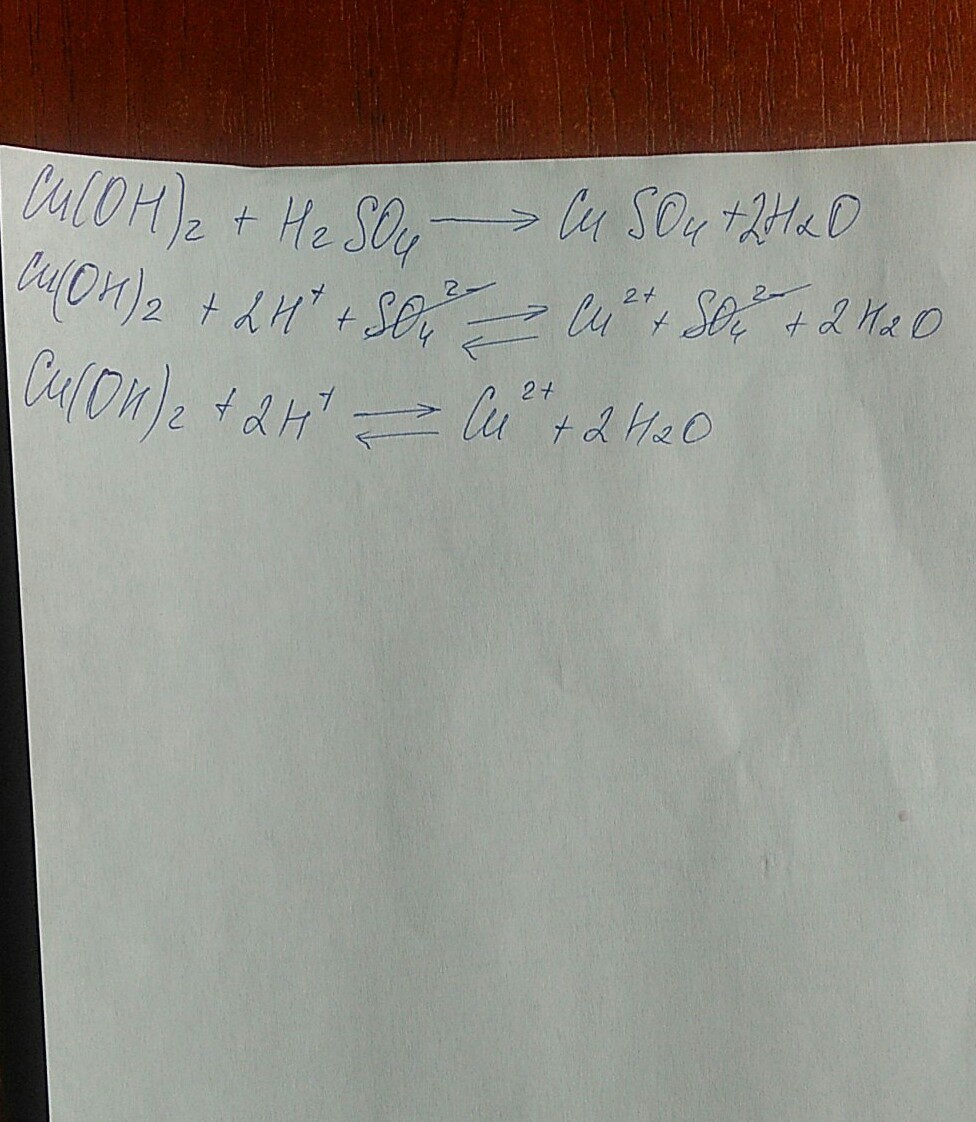 Cu(OH)₂ + H₂SO₄ → CuSO₄ + 2H₂O
Cu(OH)₂ + 2H⁺ + SO₄²⁻ ⇄ Cu²⁺ + SO₄²⁻ + 2H₂O
Cu(OH)₂ + 2H⁺ ⇄ Cu²⁺ + 2H₂O